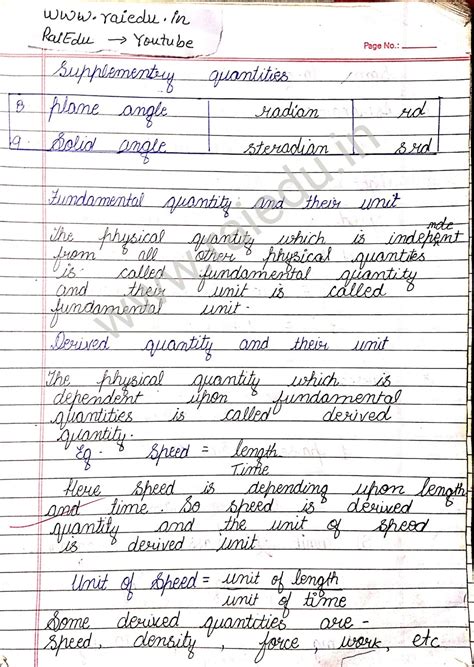 www.raiedu.in
RaiEdu → Youtube
Page No.:
Supplementry quantities
8 plane angle radian rd
9. Solid angle steradian srd
Fundamental quantity and their unit
The physical quantity which is indepent
from all other physical quantites
is called fundamental quantity
and their unit is called
fundamental unit.
Derived quantity and their unit
The physical quantity which is
dependent upon fundamental
quantities is called derived
quantity.
Eg. Speed = length
Time
Here speed is depending upon length
and time. So speed is derived
quantity and the unit of speed
is derived unit
Unit of Speed = unit of length
unit of time
Some derived quantities are -
speed, density, force, work, etc
www.raiedu.in